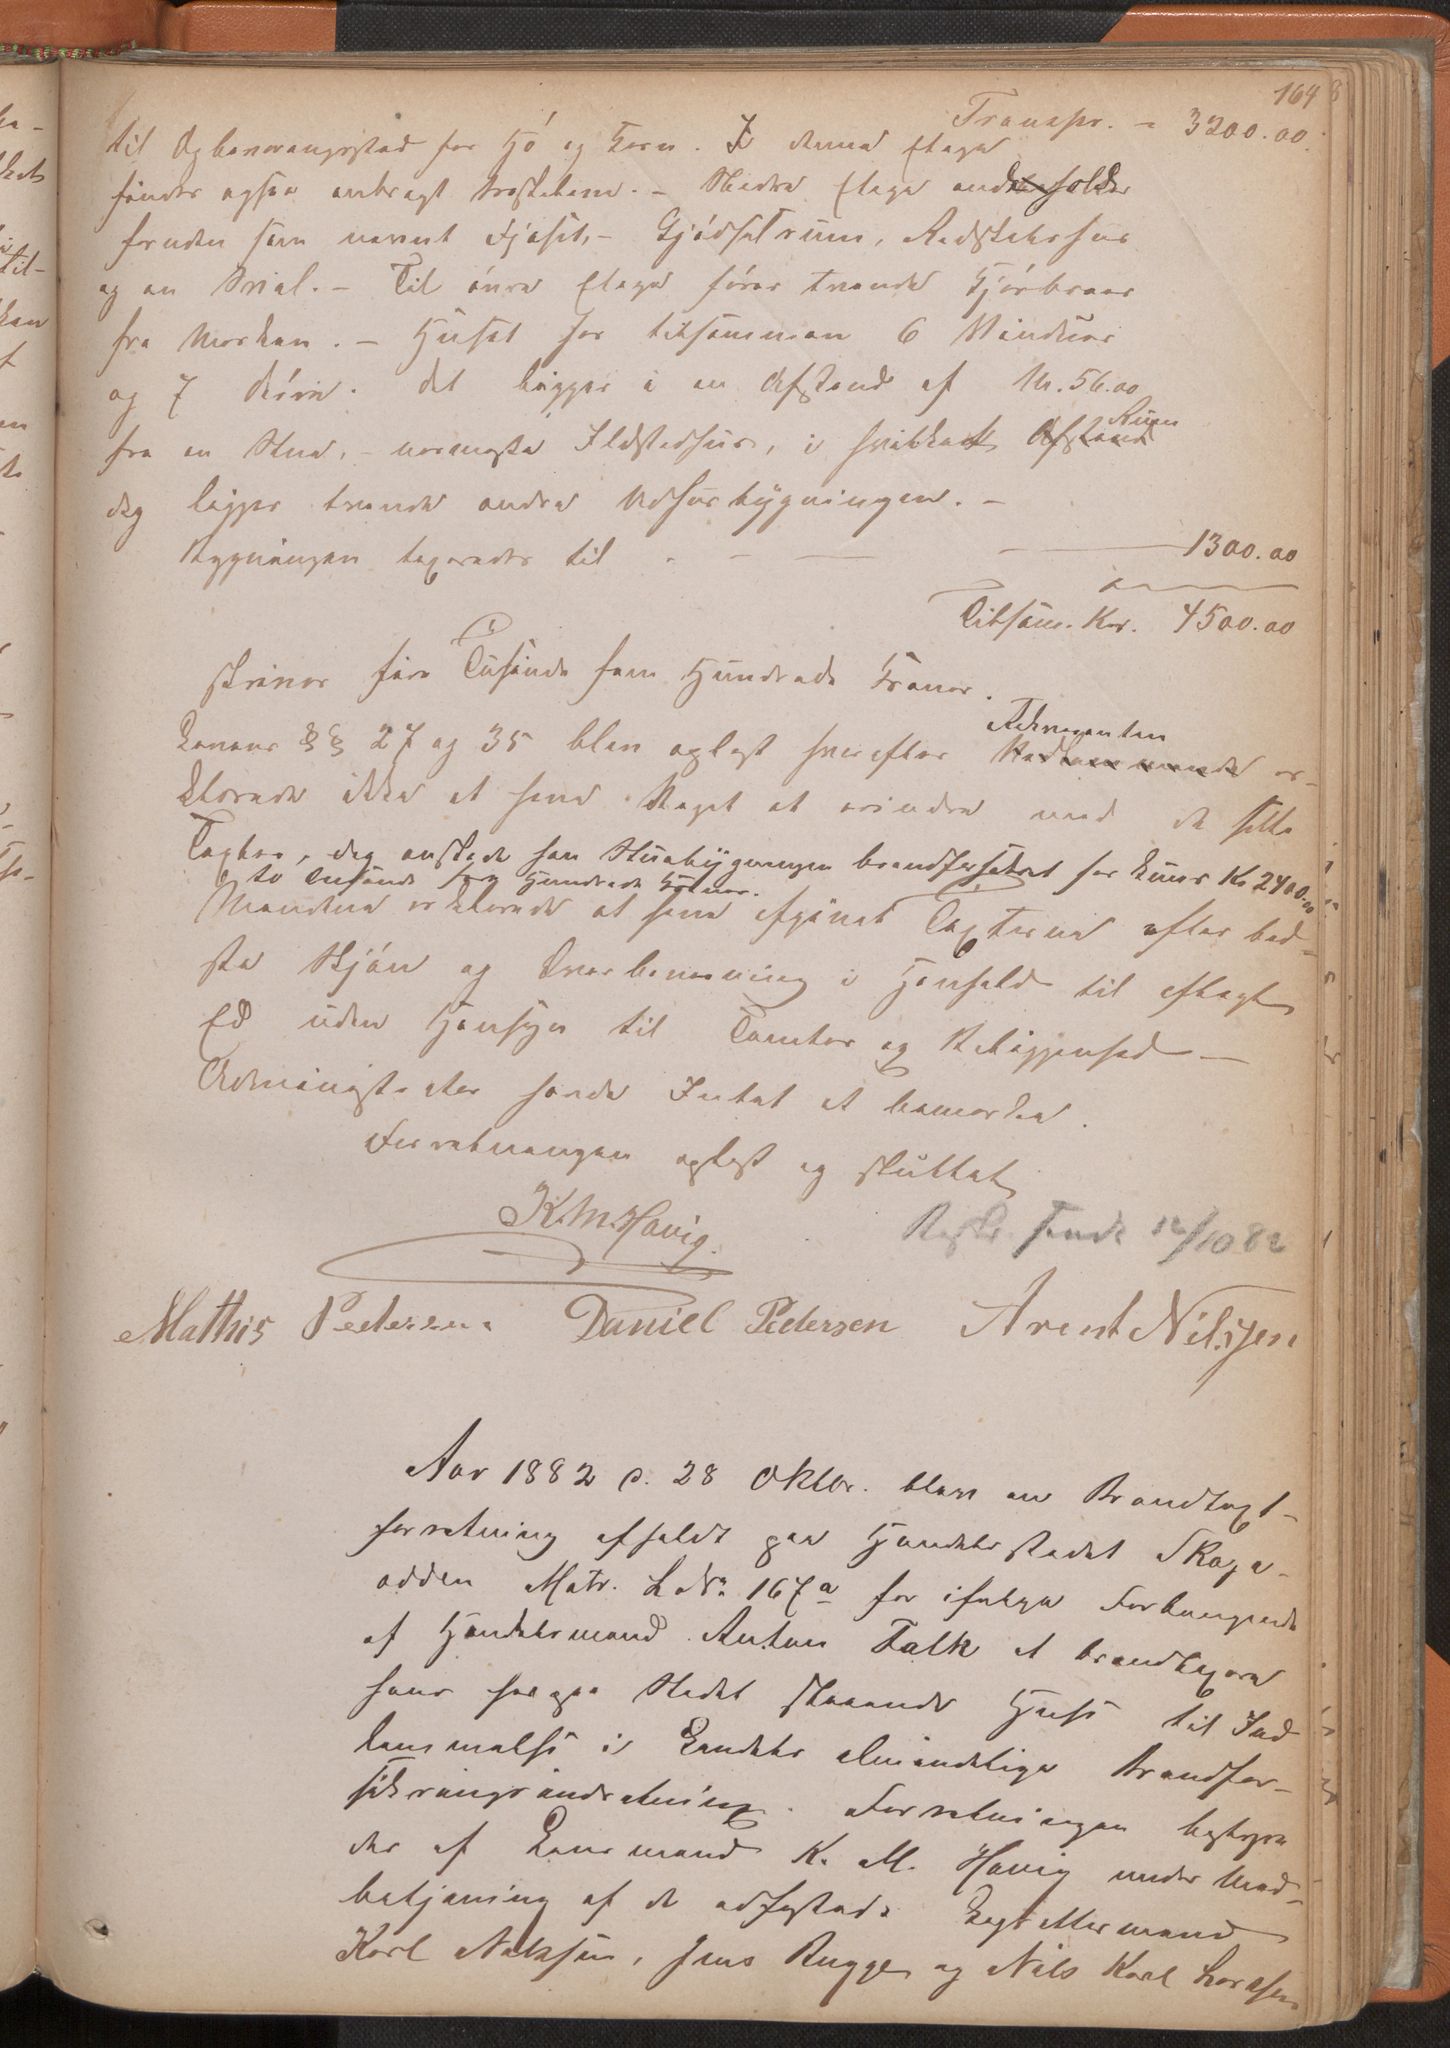 164
Transpr. - 3200.00.
til Opbevaringsstad for Hö og Korn. I denne Etage
findes ogsaa anbragt Treskelave. - Nedre Etage indeholder
foruden som nævnt Fjöset, - Gjödselrum, Redskabshus
og en Sval. - Til övre Etage förer tvende Kjörbroer
fra Marken. - Huset har tilsammen 6 Vinduer
og 7 Döre. det ligger i en Afstand af M. 56.00
fra en Stue, - nærmeste Ildstedhus, i hvilket Afstand Rum
dog ligger tvende andre Udhusbygninger. -
Bygningen taxeredes til - - - 1300.00
Tilsam. Kr. 4500.00
skriver fire Tusinde fem Hundrede Kroner.
Lovens §§ 27 og 35 blev oplæst hvorefter Vedkommende Rekvirenten er-
klærede ikke at have Noget at erindre mod de satte
Taxter, dog önskede han Stuebygningen brandforsikret for kuns Kr 2400.00
to Tusinde fire Hundrede Kroner.
Mændene erklærede at have afgivet Taxterne efter bed-
ste Skjön og Overbevisning i Henhold til aflagt
Ed uden Hensyn til Tomter og Beliggenhed -
Administrator havde Intet at bemærke.
Forretningen oplæst og sluttet
K. M. Havig.
Beskr. sendt 12/10 82
Mathis Pedersen Daniel Pedersen Arent Nilsen
Aar 1882 d. 28 Oktbr. blev en Brandtaxt-
forretning afholdt paa Handelsstedet Skaga-
odden Matr. L.No 167a for ifølge Forlangende
af Handelsmand Anton Falk at brandtaxere
hans her paa Stedet staaende Huse til Ind-
lemmelse i Landets almindelige Brandfor-
sikringsindretning. Forretningen bestyre-
des af Lensmand K. M. Havig under Med-
betjening af de edfæstede Lagrettesmænd
Karl Nilsen, Jens Bugge og Nils Karl Larssen